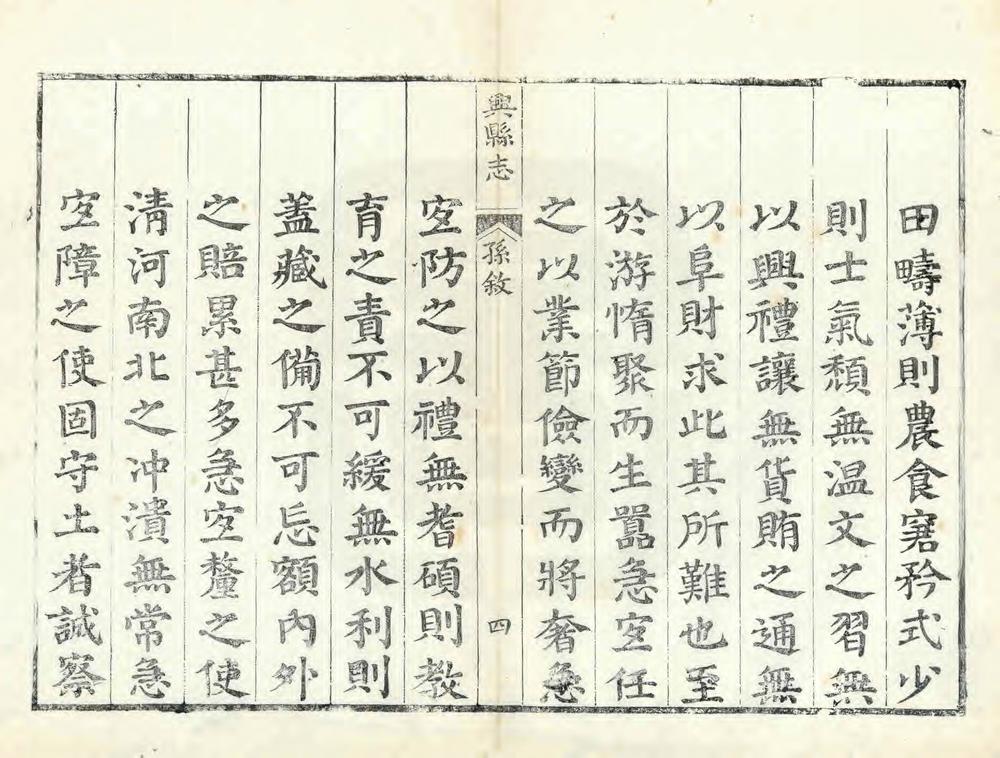 田疇薄則農食窘矜式少
則士氣頹無温文之習無
以興禮讓無貨賄之通無
以阜財求此其所難也至
於游惰聚而生囂急宐任
之以業節儉變而將奢急
興縣志
孫敘
四
宐防之以禮無耆碩則教
育之責不可緩無水利則
蓋藏之備不可忘額內外
之賠累甚多急宐釐之使
清河南北之冲潰無常急
宐障之使固守土者誠察